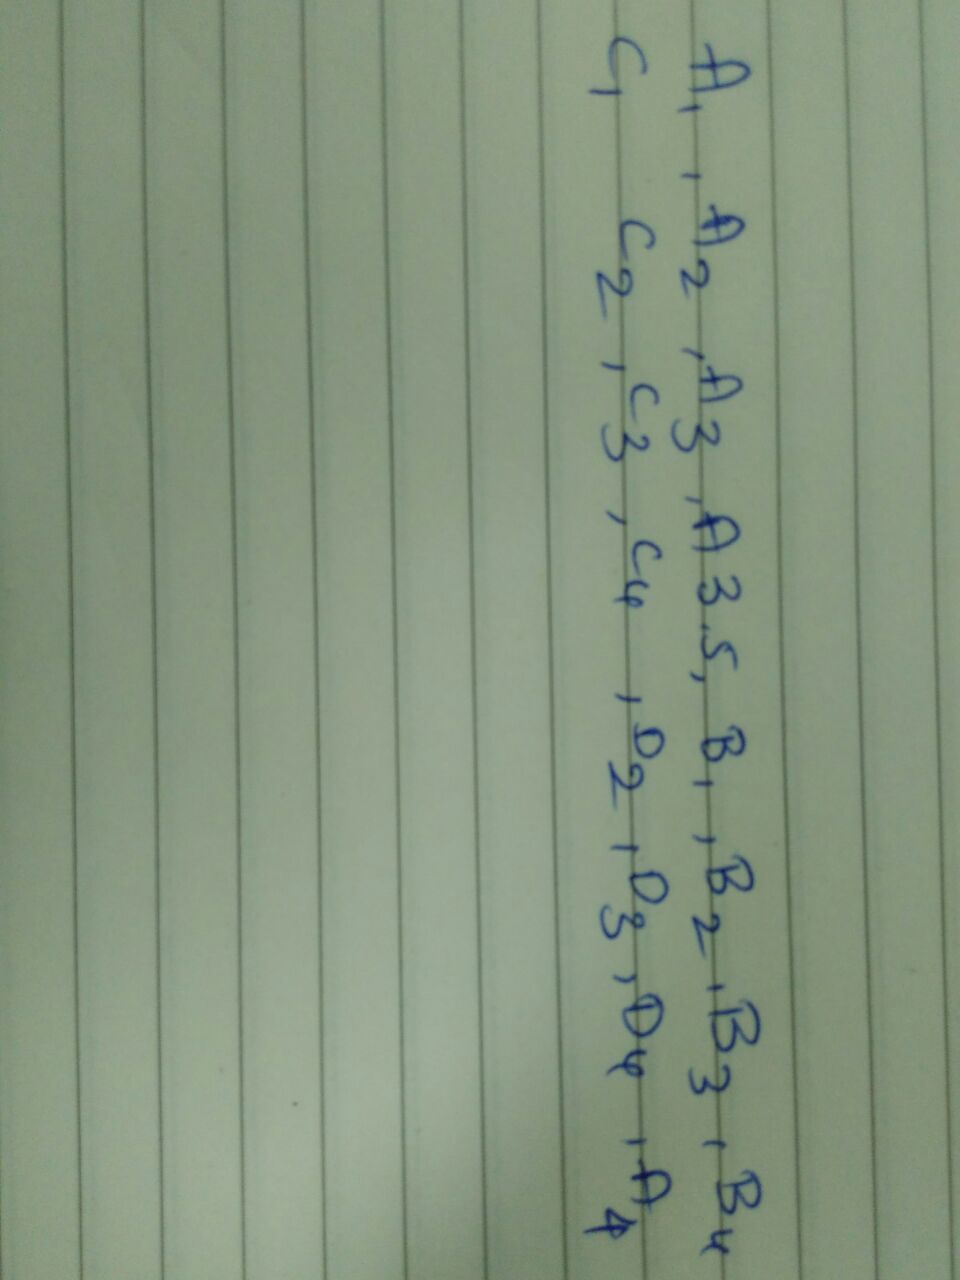 A1, A2, A3, A3.5, B1, B2, B3, B4
C1 C2, C3, C4, D2, D3, D4, A4